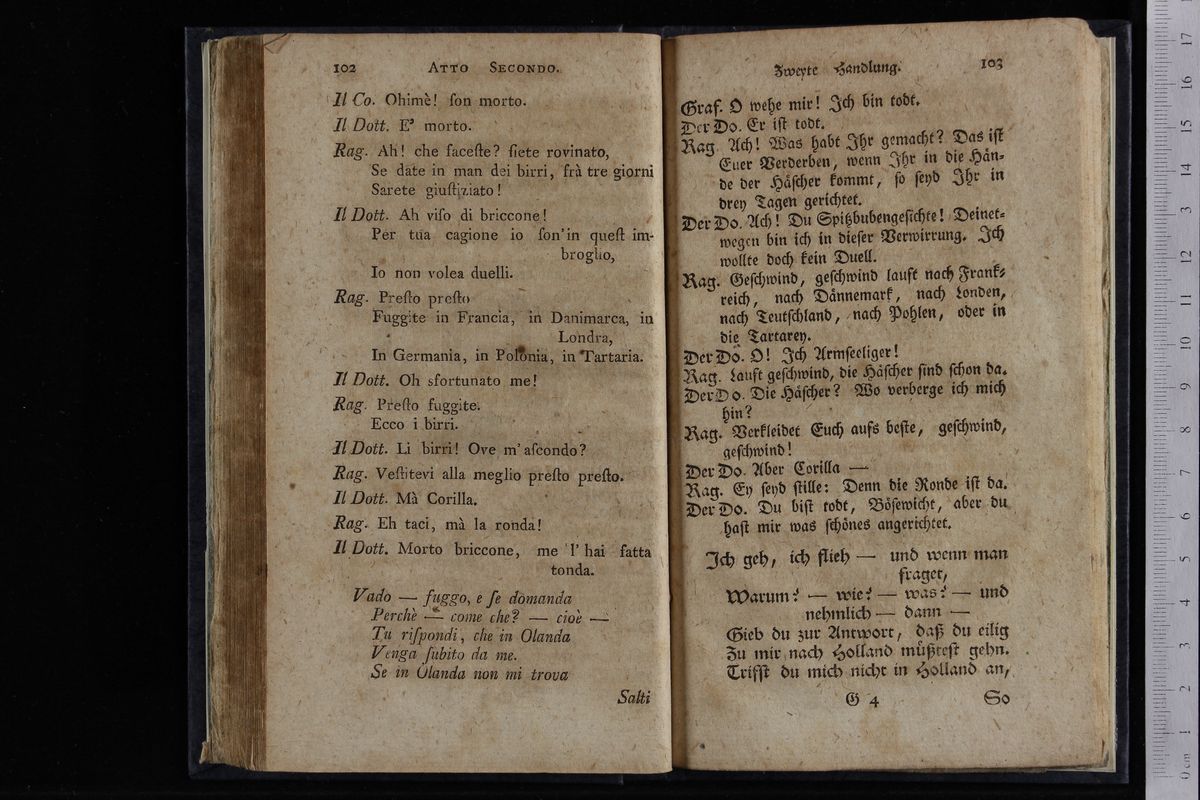 102 ATTO SECONDO.
Il Co. Ohimè! ſon morto.
Il Dott. E' morto.
Rag. Ah! che faceſte? ſiete rovinato,
Se date in man dei birri, frà tre giorni
Sarete giuſtiziato!
Il Dott. Ah viſo di briccone!
Per tua cagione io ſon'in queſt im-
broglio,
Io non volea duelli.
Rag. Preſto preſto
Fuggite in Francia, in Danimarca, in
Londra,
In Germania, in Polonia, in Tartaria.
Il Dott. Oh sfortunato me!
Rag. Preſto fuggite.
Ecco i birri.
Il Dott. Li birri! Ove m'aſcondo?
Rag. Veſtitevi alla meglio preſto preſto.
Il Dott. Mà Corilla.
Rag. Eh taci, mà la ronda!
Il Dott. Morto briccone, me l'hai fatta
tonda.
Vado — fuggo, e ſe domanda
Perchè — come che? — cioè —
Tu riſpondi, che in Olanda
Venga ſubito da me.
Se in Olanda non mi trova
Salti
Zweyte Handlung. 103
Graf. O wehe mir! Ich bin todt.
Der Do. Er iſt todt.
Rag. Ach! Was habt Ihr gemacht? Das iſt
Euer Verderben, wenn Ihr in die Hän-
de der Häſcher kommt, ſo ſeyd Ihr in
drey Tagen gerichtet.
Der Do. Ach! Du Spitzbubengeſichte! Deinet-
wegen bin ich in dieſer Verwirrung. Ich
wollte doch kein Duell.
Rag. Geſchwind, geſchwind lauft nach Frank-
reich, nach Dännemark, nach Londen,
nach Teutſchland, nach Pohlen, oder in
die Tartarey.
Der Do. O! Ich Armſeeliger!
Rag. Lauft geſchwind, die Häſcher ſind ſchon da.
Der Do. Die Häſcher? Wo verberge ich mich
hin?
Rag. Verkleidet Euch aufs beſte, geſchwind,
geſchwind!
Der Do. Aber Corilla —
Rag. Ey ſeyd ſtille: Denn die Ronde iſt da.
Der Do. Du biſt todt, Böſewicht, aber du
haſt mir was ſchönes angerichtet.
Ich geh, ich flieh — und wenn man
fraget,
Warum? — wie? — was? — und
nehmlich — dann —
Gieb du zur Antwort, daß du eilig
Zu mir nach Holland müßteſt gehn.
Triffſt du mich nicht in Holland an,
G 4 So
17
16
15
14
13
12
11
10
9
8
7
6
5
4
3
2
1
0 cm